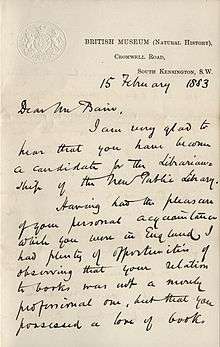 BRITISH MUSEUM (NATURAL HISTORY),
CROMWELL ROAD,
SOUTH KENSINGTON, S.W.
15 February 1883
Dear Mr Bain,
I am very glad to
hear that you have become
a candidate for the Librarian-
ship of the New Public Library.
Having had the pleasure
of your personal acquaintance
which you were in England, I
had plenty of opportunities of
observing that your relation
to books was not a merely
professional one, but that you
possessed a love of books